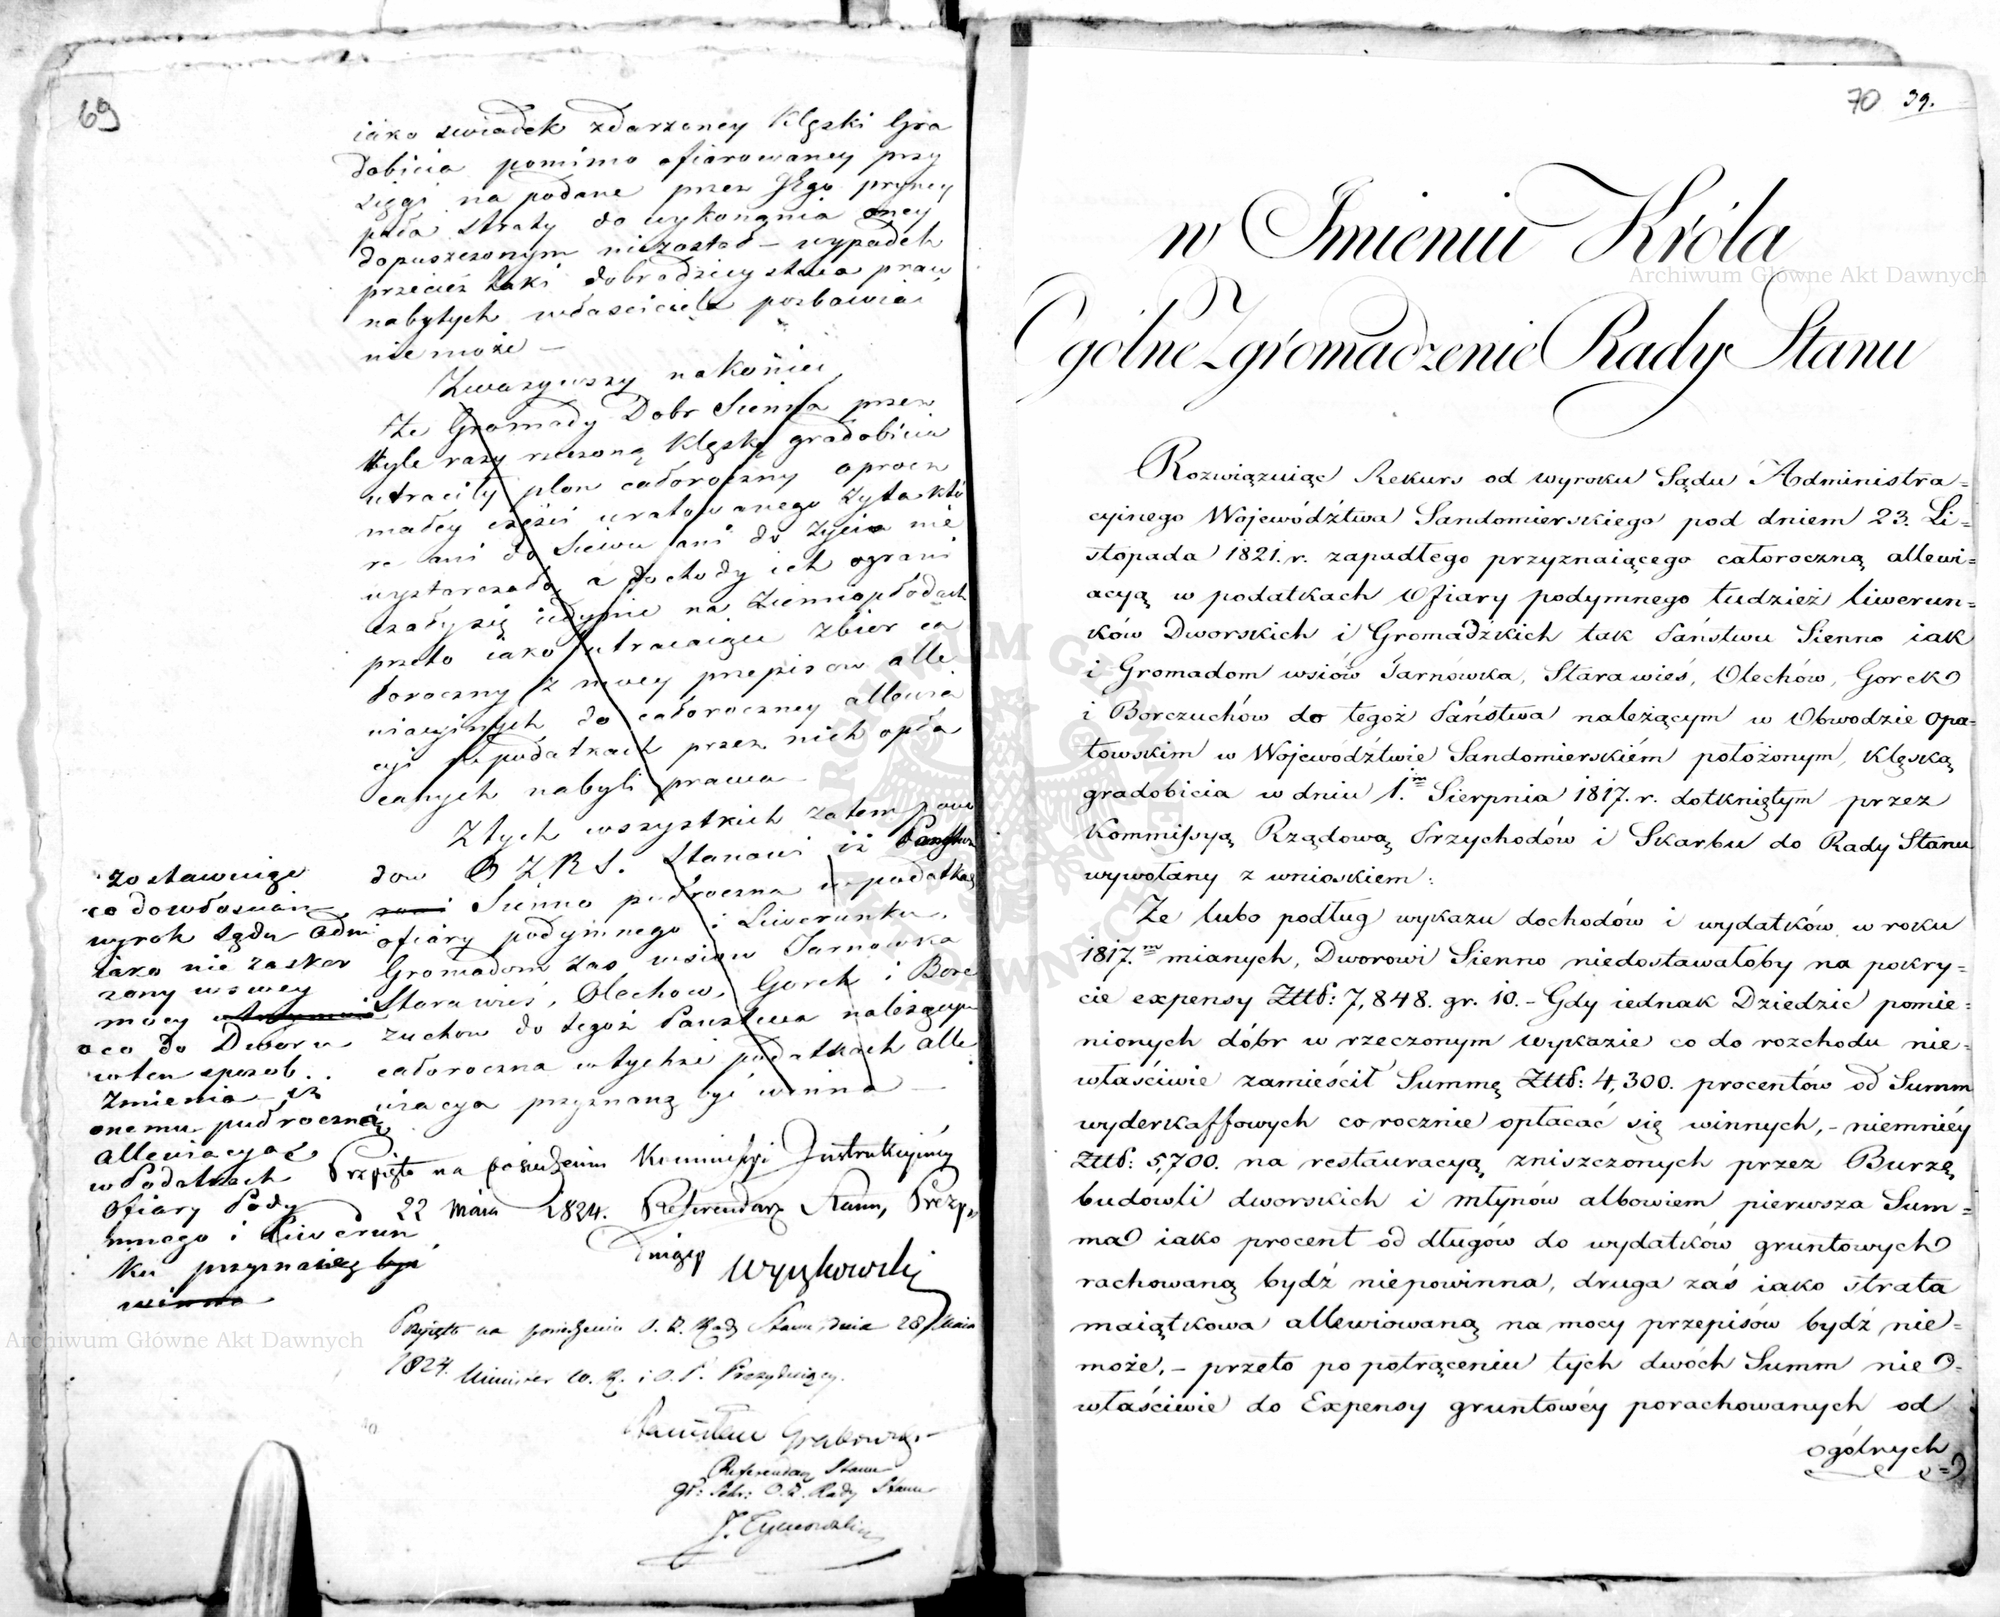 69
iako swiadek zdarzoney klęski Gra
dobicia pomimo ofiarowaney przy
sięgi na podane przez JEgo pryncy
pała straty do wykonania oney
dopuszczonym niezostał – wypadek
przecież taki dobrodzieystwa praw
nabytych właściciela pozbawiać
nie może –
Zważywszy nakoniec
Że Gromady Dobr Sienna przez
tyle razy rzeczoną klęskę gradobicia
utraciły plon całoroczny oprocz
małey części uratowanego żyta któ
re ani do siewu ani do życia nie
wystarczało, a dochody ich ograni
czały się iedynie na ziemiopłodach
przeto iako utracaiące zbior ca
łoroczny z mocy przepisow alle
wiacyinych do całoroczney allewia
cyi w podatkach przez nich opła
canych nabyli prawa –
Z tych wszystkich zatem powo
dow O Z R S. Stanowi iż Państwu
Sienno półroczna w podatkach
ofiary podymnego i Liwerunku,
Gromadom zaś wsiow Jarnowka
Starawieś, Olechow, Gorek i Bor
zuchow do tegoż Państwa należącym
całoroczna w tychże podatkach alle
wiacya przyznaną być winna –
zostawuiąc
co do włościan
wyrok Sądu Admi
iako nie zaskar
żony w swey
mocy
a co do Dworu
w ten sposob
zmienia – iż
onemu półroczną
allewiacyą
w Podatkach
Ofiary Pody
mnego i Liwerun
ku przyznaie być
winna
Przyięto na posiedzeniu Kommissyi Instrukcyiney
22 maia 1824. Referendarz Stanu, Prezy
duiący
Wyczkowski
Przyięto na posiedzeniu O. Z. Rady Stanu dnia 28 Maia
1824. Minister W. R. i O. P. Prezyduiący.
Stanisław Grabowski
Referendarz Stanu
O. Z. Rady Stanu
J. Tymowski
70 39.
w Imieniu Króla
Ogólne Zgromadzenie Rady Stanu
Rozwiązuiąc Rekurs od wyroku Sądu Administra=
cyinego Województwa Sandomierskiego pod dniem 23. Li=
stopada 1821. r. zapadłego przyznaiącego całoroczną allewi=
acyą w podatkach Ofiary podymnego tudzież liwerun=
ków Dworskich i Gromadzkich tak Państwu Sienno iak
i Gromadom wsiów Jarnówka, Starawieś, Olechów, Gorek
i Borczuchów do tegoż Państwa należącym w Obwodzie Opa=
towskim w Województwie Sandomierskiém położonym, klęską
gradobicia w dniu 1.m Sierpnia 1817. r. dotkniętym przez
Kommissyą Rządową Przychodów i Skarbu do Rady Stanu
wywołany z wnioskiem:
Że lubo podług wykazu dochodów i wydatków w roku
1817.m mianych, Dworowi Sienno niedostawałoby na pokry=
cie expensy Złłł: 7,848. gr. 10. – Gdy iednak Dziedzic pomie=
nionych dóbr w rzeczonym wykazie co do rozchodu nie=
właściwie zamieścił Summę Złłł: 4,300. procentów od Summ
wyderkaffowych corocznie opłacać się winnych, – niemniéy
Złłł: 5,700. na restauracyą zniszczonych przez Burzę
budowli dworskich i młynów albowiem pierwsza Sum=
ma iako procent od długów do wydatków gruntowych
rachowaną bydź niepowinna, druga zaś iako strata
maiątkowa allewiowaną na mocy przepisów bydź nie=
może, – przeto po potrąceniu tych dwóch Summ nie=
właściwie do Expensy gruntowéy porachowanych od
ogólnych
Archiwum Główne Akt Dawnych
Archiwum Główne Akt Dawnych
ARCHIWUM GŁÓWNE AKT DAWNYCH